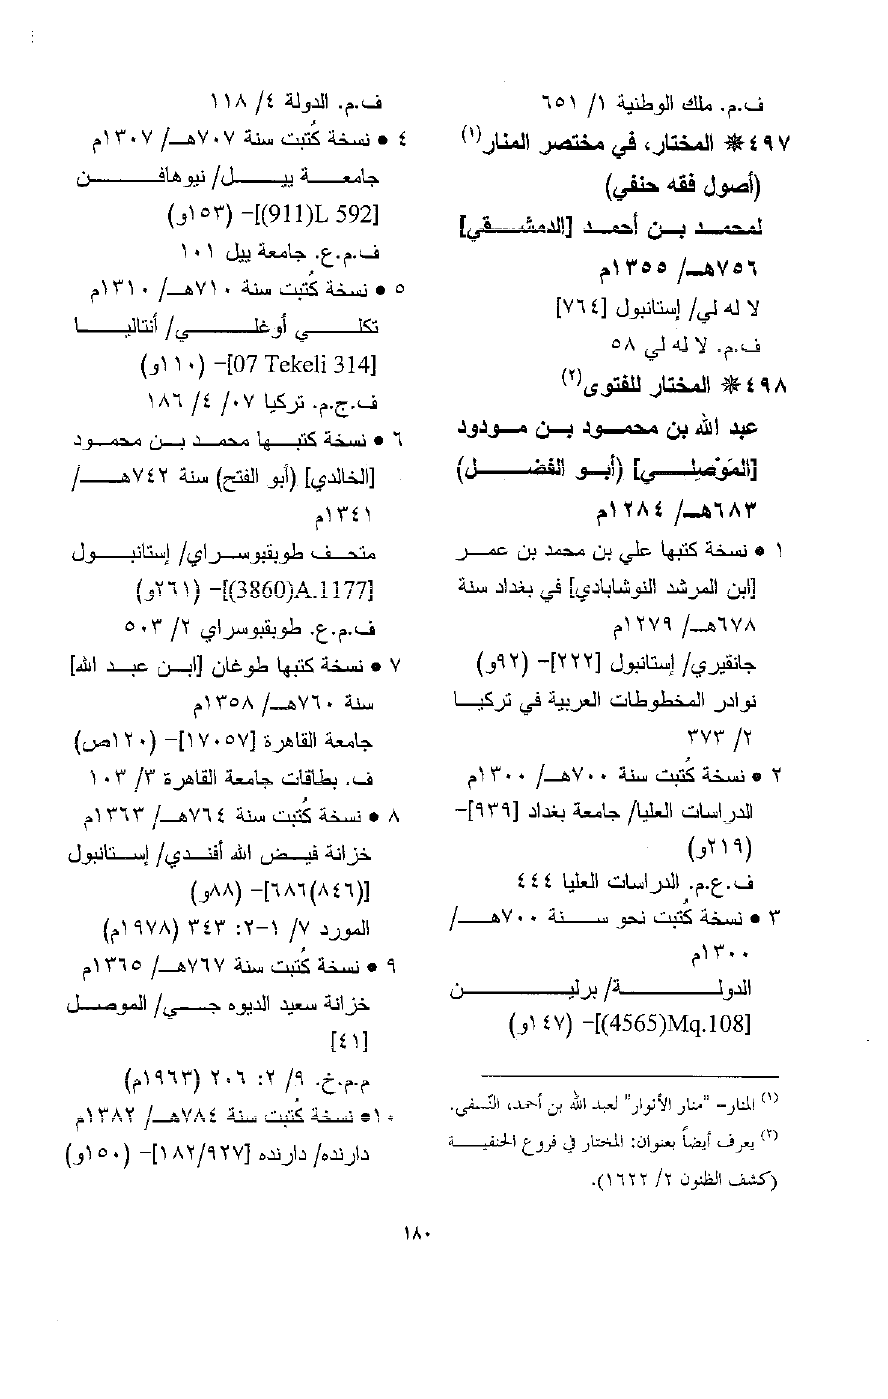 ف.م. ملك الوطنية ١/ ٦٥١
٤٩٧ ❋ المختار، في مختصر المنار(١)
(أصول فقه حنفي)
لمحمد بن أحمد [الدمشقي]
٧٥٦هـ/ ١٣٥٥م
لا له لي/ إستانبول [٧٦٤]
ف.م. لا له لي ٥٨
٤٩٨ ❋ المختار للفتوى(٢)
عبد الله بن محمود بن مودود
[المَوْصِلِي] (أبو الفضل)
٦٨٣هـ/ ١٢٨٤م
١ • نسخة كتبها علي بن محمد بن عمر
[ابن المرشد النوشابادي] في بغداد سنة
٦٧٨هـ/ ١٢٧٩م
جانقيري/ إستانبول [٢٢٢]– (٩٢و)
نوادر المخطوطات العربية في تركيا
٢/ ٣٧٣
٢ • نسخة كُتبت سنة ٧٠٠هـ/ ١٣٠٠م
الدراسات العليا/ جامعة بغداد [٩٣٩]–
(٢١٩و)
ف.ع.م. الدراسات العليا ٤٤٤
٣ • نسخة كُتبت نحو سنة ٧٠٠هـ/
١٣٠٠م
الدولة/ برلين
[Mq.108(4565)]– (١٤٧و)
(١) المنار– "منار الأنوار" لعبد الله بن أحمد، النّسفي.
(٢) يعرف أيضاً بعنوان: المختار في فروع الحنفية
(كشف الظنون ٢/ ١٦٢٢).
ف.م. الدولة ٤/ ١١٨
٤ • نسخة كُتبت سنة ٧٠٧هـ/ ١٣٠٧م
جامعة ييل/ نيوهافن
[L 592(911)]– (١٥٣و)
ف.م.ع. جامعة ييل ١٠١
٥ • نسخة كُتبت سنة ٧١٠هـ/ ١٣١٠م
تكلي أوغلي/ أنتاليا
[07 Tekeli 314]– (١١٠و)
ف.ج.م. تركيا ٠٧/ ٤/ ١٨٦
٦ • نسخة كتبها محمد بن محمود
[الخالدي] (أبو الفتح) سنة ٧٤٢هـ/
١٣٤١م
متحف طوبقبوسراي/ إستانبول
[A.1177(3860)]– (٢٦١و)
ف.م.ع. طوبقبوسراي ٢/ ٥٠٣
٧ • نسخة كتبها طوغان [ابن عبد الله]
سنة ٧٦٠هـ/ ١٣٥٨م
جامعة القاهرة [١٧٠٥٧]– (١٢٠ص)
ف. بطاقات جامعة القاهرة ٣/ ١٠٣
٨ • نسخة كُتبت سنة ٧٦٤هـ/ ١٣٦٣م
خزانة فيض الله أفندي/ إستانبول
[٦٨٦(٨٤٦)]– (٨٨و)
المورد ٧/ ١–٢: ٣٤٣ (١٩٧٨م)
٩ • نسخة كُتبت سنة ٧٦٧هـ/ ١٣٦٥م
خزانة سعيد الديوه جي/ الموصل
[٤١]
م.م.خ. ٩/ ٢: ٢٠٦ (١٩٦٣م)
١٠• نسخة كُتبت سنة ٧٨٤هـ/ ١٣٨٢م
دارنده/ دارنده [١٨٢/٩٢٧]– (١٥٠و)
١٨٠